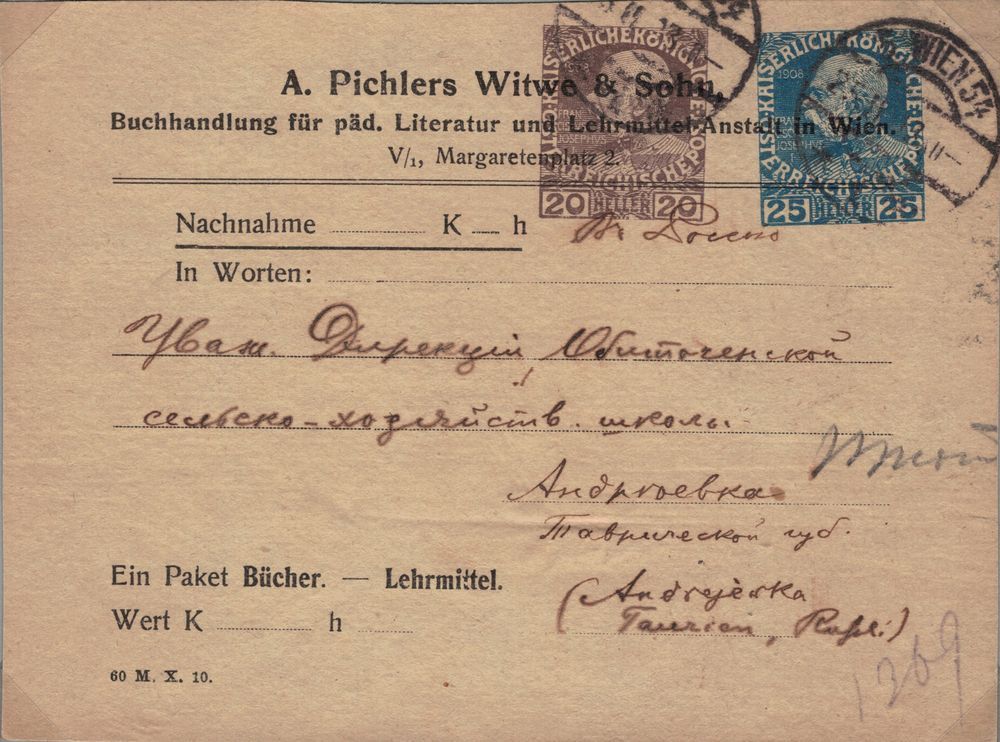 A. Pichlers Witwe & Sohn,
Buchhandlung für päd. Literatur und Lehrmittel-Anstalt in Wien.
V/1, Margaretenplatz 2.
KAISERLICHE KÖNIGLICHE ÖSTERREICHISCHE POST
20 HELLER 20
KAISERLICHE KÖNIGLICHE ÖSTERREICHISCHE POST
1908
25 HELLER 25
WIEN 54
Nachnahme K h
In Worten:
Уваж. Дирекціи Обиточенской
сельско-хозяйств. школы
Андреевка
Таврической губ.
(Andrejewka
Taurien, Rußl.)
Ein Paket Bücher. — Lehrmittel.
Wert K h
60 M. X. 10.
1369